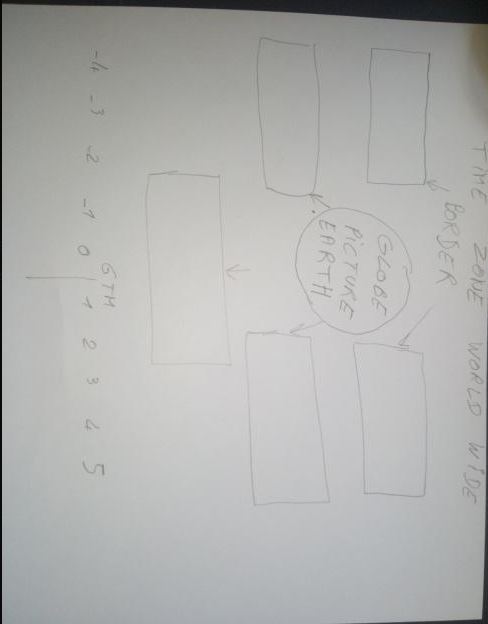 TIME ZONE WORLD WIDE
BORDER
GLOBE
PICTURE
EARTH
GTM
-4 -3 -2 -1 0 1 2 3 4 5